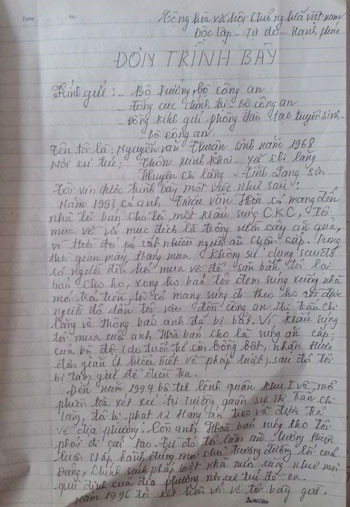 Cộng hòa xã hội Chủ nghĩa việt nam
Độc lập - Tự do - Hạnh phúc
ĐƠN TRÌNH BÀY
Kính gửi: - Bộ trưởng bộ công an
- Tổng cục chính trị bộ công an
- Đồng kính gửi phòng đào tạo tuyển sinh
bộ công an
Tên tôi là: Nguyễn văn Thuân sinh năm 1968
Nơi cư trú: Thôn minh khai - xã chi lăng
Huyện chi lăng - Tỉnh Lạng Sơn
Tôi xin được trình bày một việc như sau:
Năm 1993 có anh Triệu văn Hoà có mang đến
nhà tôi bán cho tôi một khẩu súng C.K.C, Tôi
mua về với mục đích là trông vườn cây ăn quả,
vì thời đó có rất nhiều người ăn chộm cắp. Trong
thời gian mấy tháng mua không sử dụng sau đó
có người đến hỏi mua về để săn bắn tôi lại
bán cho họ, xong họ bảo tôi đem súng xuống nhà
mới trả tiền, tôi có mang súng đi theo họ thì được
người đó dẫn tôi vào đồn công an thị trấn Chi
lăng và thông báo anh đã bị bắt. Vì khẩu súng
tôi mua của anh Hoà bán cho là súng ăn cắp
của bộ đội do tuổi trẻ còn bồng bột, nhận thức
đơn giản ít hiểu biết về pháp luật, sau đó tôi
bị tạm giữ để điều tra.
Đến năm 1994 bộ tư lệnh quân khu I về mở
phiên toà xét xử tại trường quân sự thị trấn chi
lăng, tôi bị phạt 12 tháng án treo và được trả
về địa phương. Còn anh Hoà bán súng cho tôi
phải đi cải tạo. Từ đó tôi làm ăn lương thiện
luôn chấp hành đúng mọi chủ trương đường lối của
Đảng, chính sách pháp luật nhà nước cũng như mọi
qui định của địa phương nơi cư trú đề ra.
Năm 1996 tôi